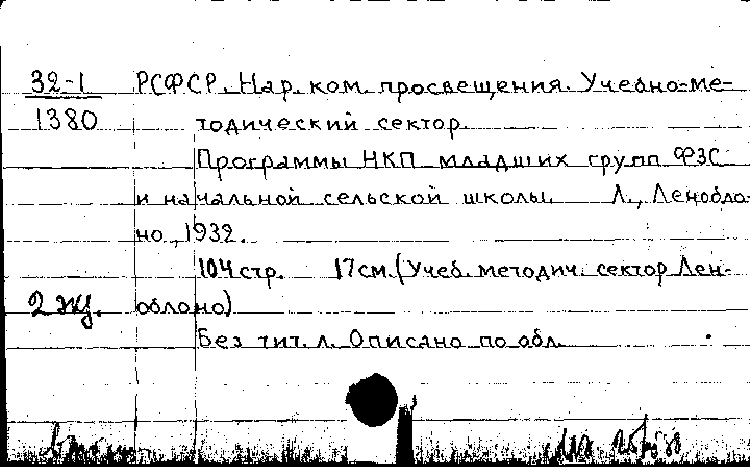 32-1 РСФСР. Нар. ком. просвещения. Учебно-ме-
1380 тодический сектор.
Программы НКП младших групп ФЗС
и начальной сельской школы. Л., Леноблo-
но, 1932.
104 стр. 17 см. (Учеб. методич. сектор Лен-
2 экз. облоно)
Без тит. л. Описано по обл.